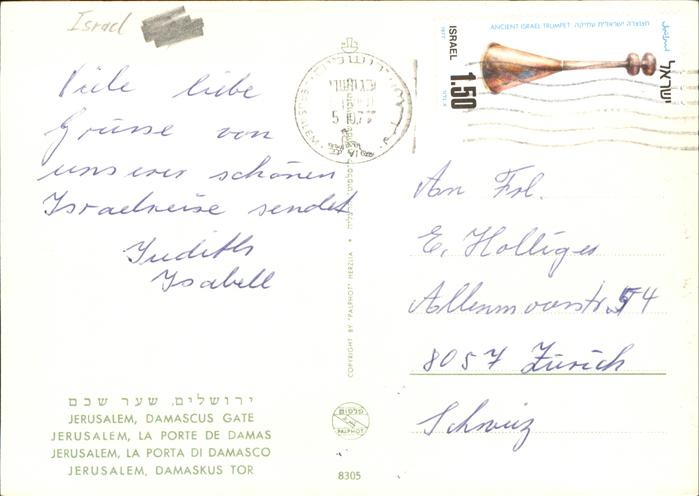 Israel
Viele liebe
Grüsse von
unserer schönen
Israelreise sendet
Judith
Isabell
ירושלים, שער שכם
JERUSALEM, DAMASCUS GATE
JERUSALEM, LA PORTE DE DAMAS
JERUSALEM, LA PORTA DI DAMASCO
JERUSALEM, DAMASKUS TOR
COPYRIGHT BY "PALPHOT" HERZLIA
פלפוט
PALPHOT
8305
5.10.77
ANCIENT ISRAEL TRUMPET חצוצרה ישראלית עתיקה
1977
ISRAEL
1.50
ישראל
اسرائيل
An Frl.
E. Holliger
Allenmoosstr. 54
8057 Zürich
Schweiz